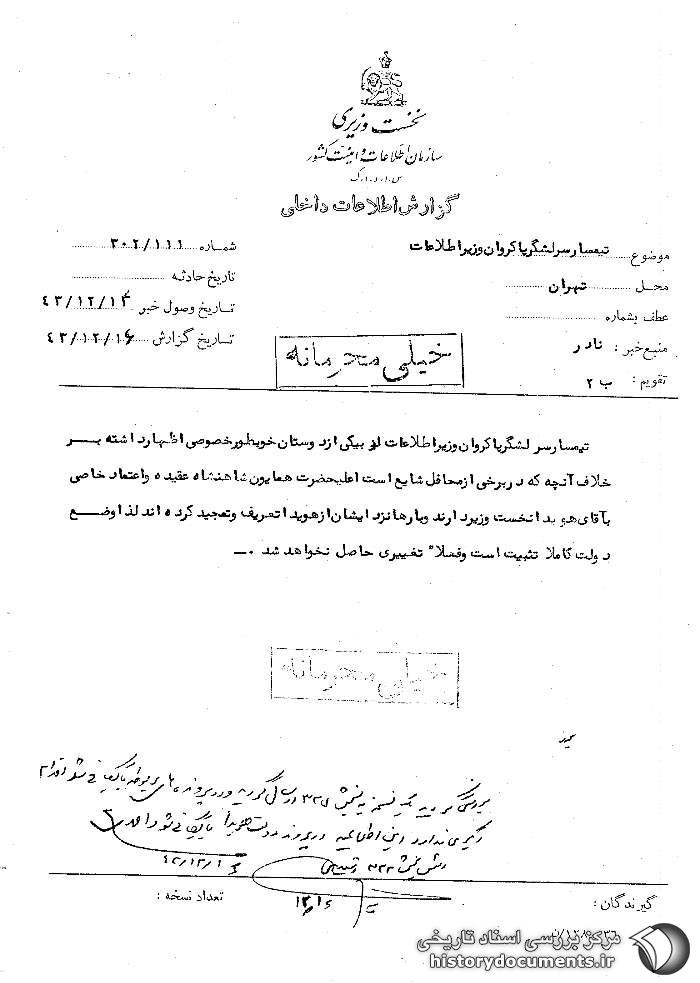 نخست وزیری
سازمان اطلاعات و امنیت کشور
س.ا.و.ا.ک
گزارش اطلاعات داخلی
موضوع تیمسار سرلشگر پاکروان وزیر اطلاعات
شماره ۳۰۲/۱۱۱
محل تهران
تاریخ حادثه
عطف بشماره
تاریخ وصول خبر ۴۳/۱۲/۱۴
منبع خبر : نادر
تاریخ گزارش ۴۳/۱۲/۱۶
تقویم : ب ۲
خیلی محرمانه
تیمسار سر لشگر پاکروان وزیر اطلاعات بیکی از دوستان خود بطور خصوصی اظهار داشته بر
خلاف آنچه که در برخی از محافل شایع است اعلیحضرت همایون شاهنشاه عقیده و اعتماد خاصی
بآقای هویدا نخست وزیر دارند و بارها نزد ایشان از هویدا تعریف و تمجید کرده اند لذا وضع
دولت کاملا تثبیت است و فعلا" تغییری حاصل نخواهد شد .ـ
خیلی محرمانه
دیگری ندارد این اطلاعیه در پرونده دولت هویدا بایگانی شود
رئیس بخش ۳۲۲
۴۳/۱۲/۱۶
گیرندگان :
تعداد نسخه :
مرکز بررسی اسناد تاریخی
historydocuments.ir